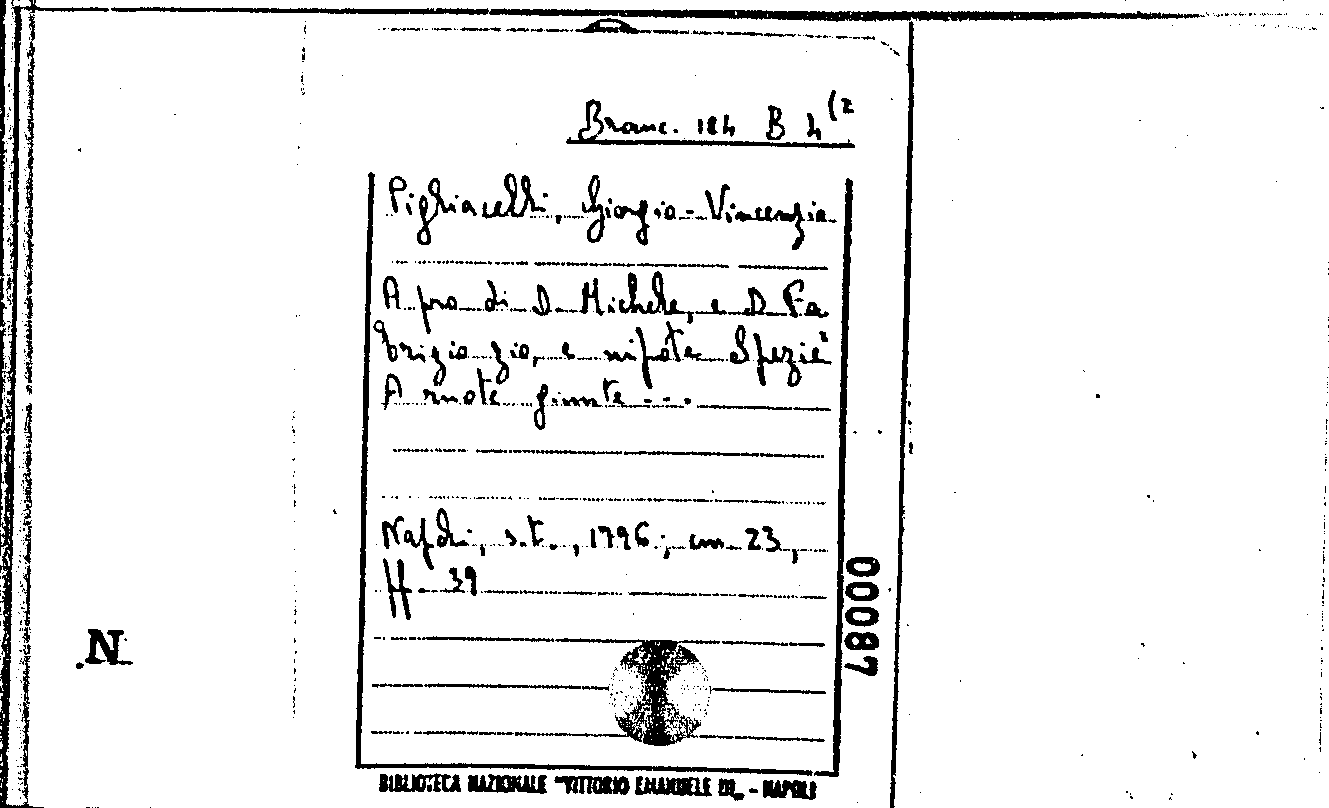 Branc. 124 B 4 (2
Pigliacelli, Giorgio-Vincenzio
A pro di D. Michele, e D. Fa
brizio zio, e nipote Spezie
A ruote giunte ...
Napoli, s.t., 1796; cm 23,
ff. 39
00087
N
BIBLIOTECA NAZIONALE "VITTORIO EMANUELE III„ - NAPOLI